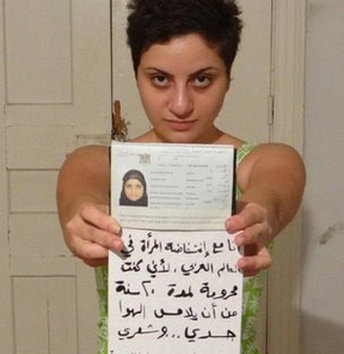 أنا مع إنتفاضة المرأة في
العالم العربي ، لأني كنت
محرومة لمدة ٢٠ سنة
من أن يلامس الهوا
جسدي ... وشعري